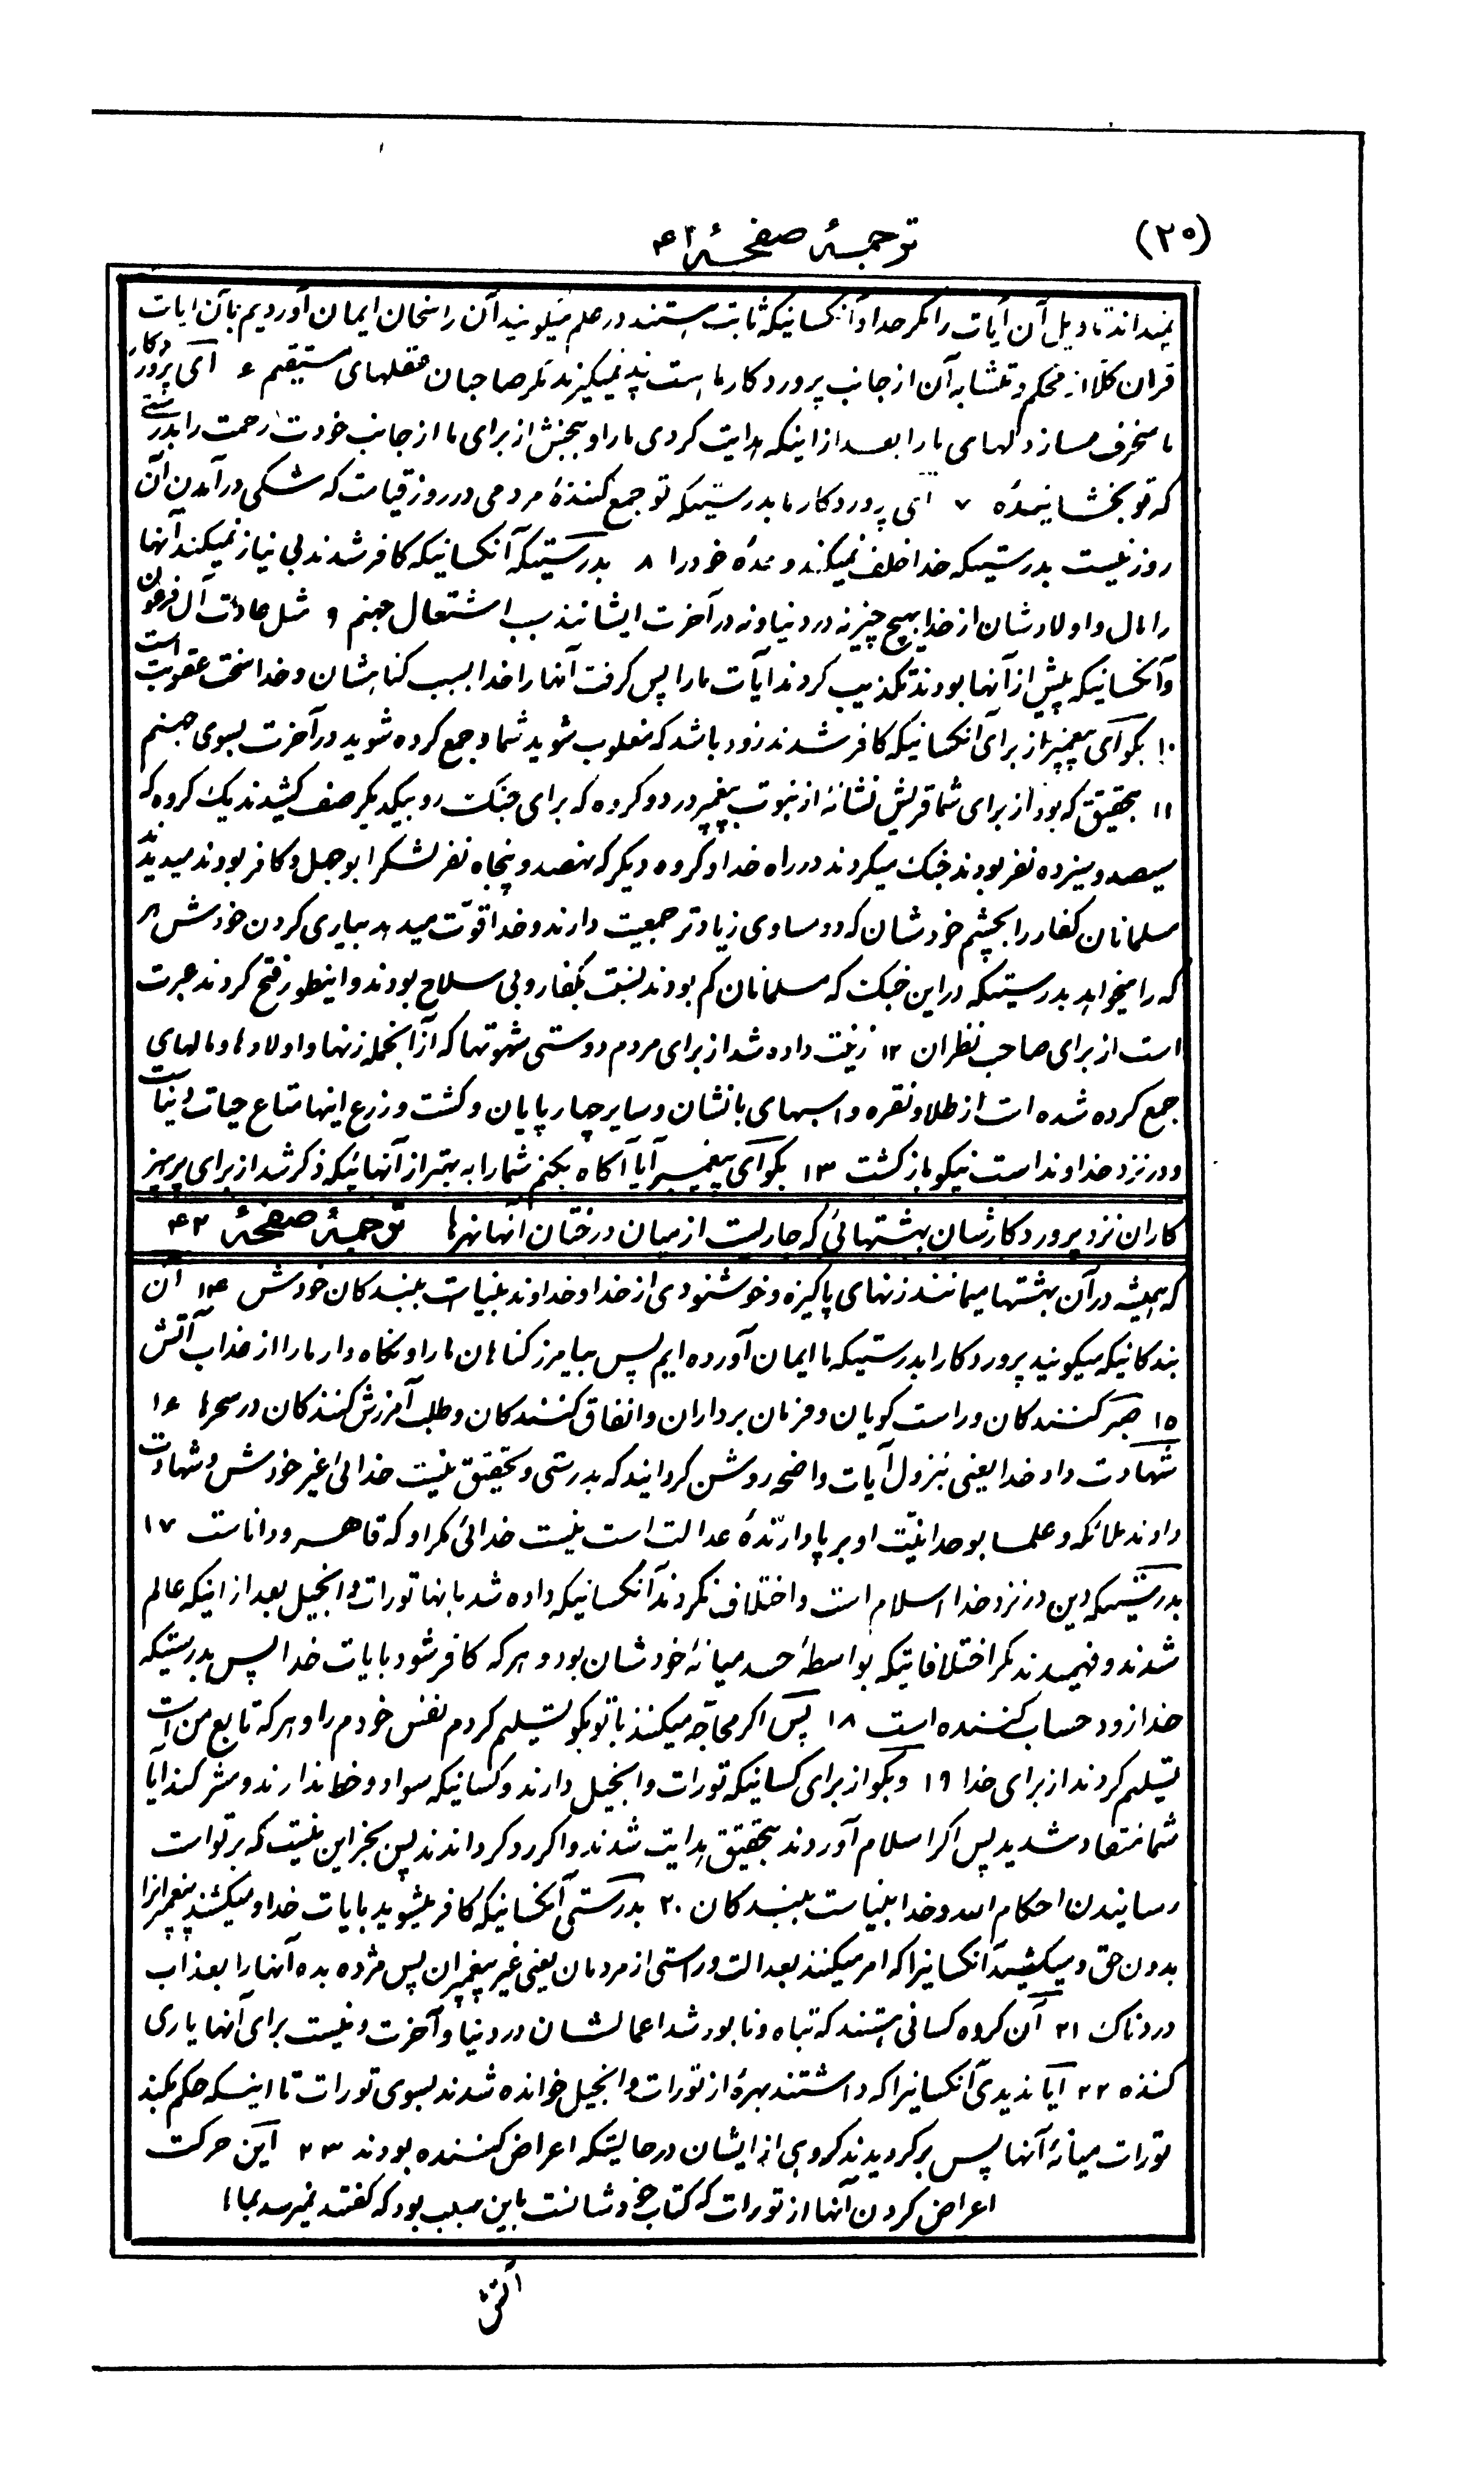 (۲۵)
ترجمهٔ صفحهٔ ۴۱
نمیداند تاویل آن آیات را مگر خدا و آنکسانیکه ثابت هستند در علم میگویند آن راسخان ایمان آوردیم بآن ایات
قران کلا از محکم و متشابه آن از جانب پروردکار ما است پند نمیکیرند مگر صاحبان عقلهای مستقیم ۶ آی پروردکار
ما منحرف مساز دلهای ما را بعد از اینکه هدایت کردی ما را و ببخش از برای ما از جانب خودت رحمت را بدرستی
که تو بخشاینده ۷ آی پروردکار ما بدرستیکه تو جمع کنندهٔ مردمی در روز قیامت که شکی در آمدن آن
روز نیست بدرستیکه خدا خلف نمیکند وعدهٔ خود را ۸ بدرستیکه آنکسانیکه کافر شدند بی نیاز نمیکند آنها
را مال و اولادشان از خدا بهیچ چیز نه در دنیا و نه در آخرت ایشانند سبب اشتعال جهنم ۹ مثل عادت آل فرعون
وآنکسانیکه پیش از آنها بودند تکذیب کردند ایآت ما را پس کرفت آنها را خدا بسبب کناهشان و خدا سخت عقوبت است
۱۰ بکو آی پیغمبر از برای آنکسانیکه کافر شدند زود باشد که مغلوب شوید شما و جمع کرده شوید در آخرت بسوی جهنم
۱۱ بتحقیق که بود از برای شما قریش نشانهٔ از نبوت پیغمبر در دو کروه که برای جنک رو بیکدیکر صف کشیدند یک کروه که
سیصد و سیزده نفر بودند جنک میکردند در راه خدا و کروه دیکر که نهصد و پنجاه نفر لشکر ابوجهل و کافر بودند میدیدند
مسلمانان کفار را بچشم خودشان که دو مساوی زیادتر جمعیت دارند و خدا قوّت میدهد بیاری کردن خودش هر
که را میخواهد بدرستیکه در این جنک که مسلمانان کم بودند نسبت بکفار و بی سلاح بودند و اینطور فتح کردند عبرت
است از برای صاحب نظران ۱۲ زینت داده شد از برای مردم دوستی شهوتها که از آنجمله زنها و اولادها و مالهای
جمع کرده شده است از طلا و نقره و اسبهای با نشان و سایر چهارپایان و کشت و زرع اینها متاع حیات دنیا است
و در نزد خداوند است نیکو بازکشت ۱۳ بکو آی پیغمبر آیا آکاه بکنم شما را به بهتر از آنهائیکه ذکر شد از برای پرهیز
کاران نزد پروردکارشان بهشتهائی که جاریست از میان درختان آنها نهرها ترجمهٔ صفحهٔ ۴۲
که همیشه در آن بهشتها میمانند زنهای پاکیزه و خوشنودی از خدا و خداوند بینا است ببندکان خودش ۱۴ آن
بندکانیکه میکویند پروردکارا بدرستیکه ما ایمان آورده ایم پس بیامرز کناهان ما را و نکاه دار ما را از عذاب آتش
۱۵ صبر کنندکان و راست کویان و فرمان برداران و انفاق کنندکان و طلب آمرزش کنندکان در سحرها ۱۶
شهادت داد خدا یعنی بنزول آیات واضحه روشن کردانید که بدرستی و تحقیق نیست خدائی غیر خودش و شهادت
دادند ملائکه و علما بوحدانیّت او برپا دارندهٔ عدالت است نیست خدائی مکر او که قاهر و دانا است ۱۷
بدرستیکه دین در نزد خدا اسلام است و اختلاف نکردند آنکسانیکه داده شد بانها تورات و انجیل بعد از اینکه عالم
شدند و فهمیدند مکر اختلافاتیکه بواسطهٔ حسد میانهٔ خودشان بود و هر که کافر شود بایات خدا پس بدرستیکه
خدا زود حساب کننده است ۱۸ پس اکر محاجّه میکنند با تو بکو تسلیم کردم نفس خودم را و هر که تابع من است
تسلیم کردند از برای خدا ۱۹ و بکو از برای کسانیکه تورات و انجیل دارند و کسانیکه سواد و خط ندارند و مشرکند آیا
شما منقاد شدید پس اکر اسلام آوردند بتحقیق هدایت شدند و اکر رد کرداندند پس بجز این نیست که بر تو است
رسانیدن احکام الله و خدا بینا است ببندکان ۲۰ بدرستی آنکسانیکه کافر میشوید بایات خدا و میکشند پیغمبرانرا
بدون حق و میکشند آنکسانیرا که امر میکنند بعدالت و راستی از مردمان یعنی غیر پیغمبران پس مژده بده آنها را بعذاب
دردناک ۲۱ آن کروه کسانی هستند که تباه و نابود شد اعمالشان در دنیا و آخرت و نیست برای آنها یاری
کننده ۲۲ آیا ندیدی آنکسانیرا که داشتند بهرهٔ از تورات و انجیل خوانده شدند بسوی تورات تا اینکه حکم بکند
تورات میانهٔ آنها پس برکردیدند کروهی از ایشان در حالیتیکه اعراض کننده بودند ۲۳ این حرکت
اعراض کردن آنها از تورات که کتاب خودشانست باین سبب بود که کفتند نمیرسد بما
آتش